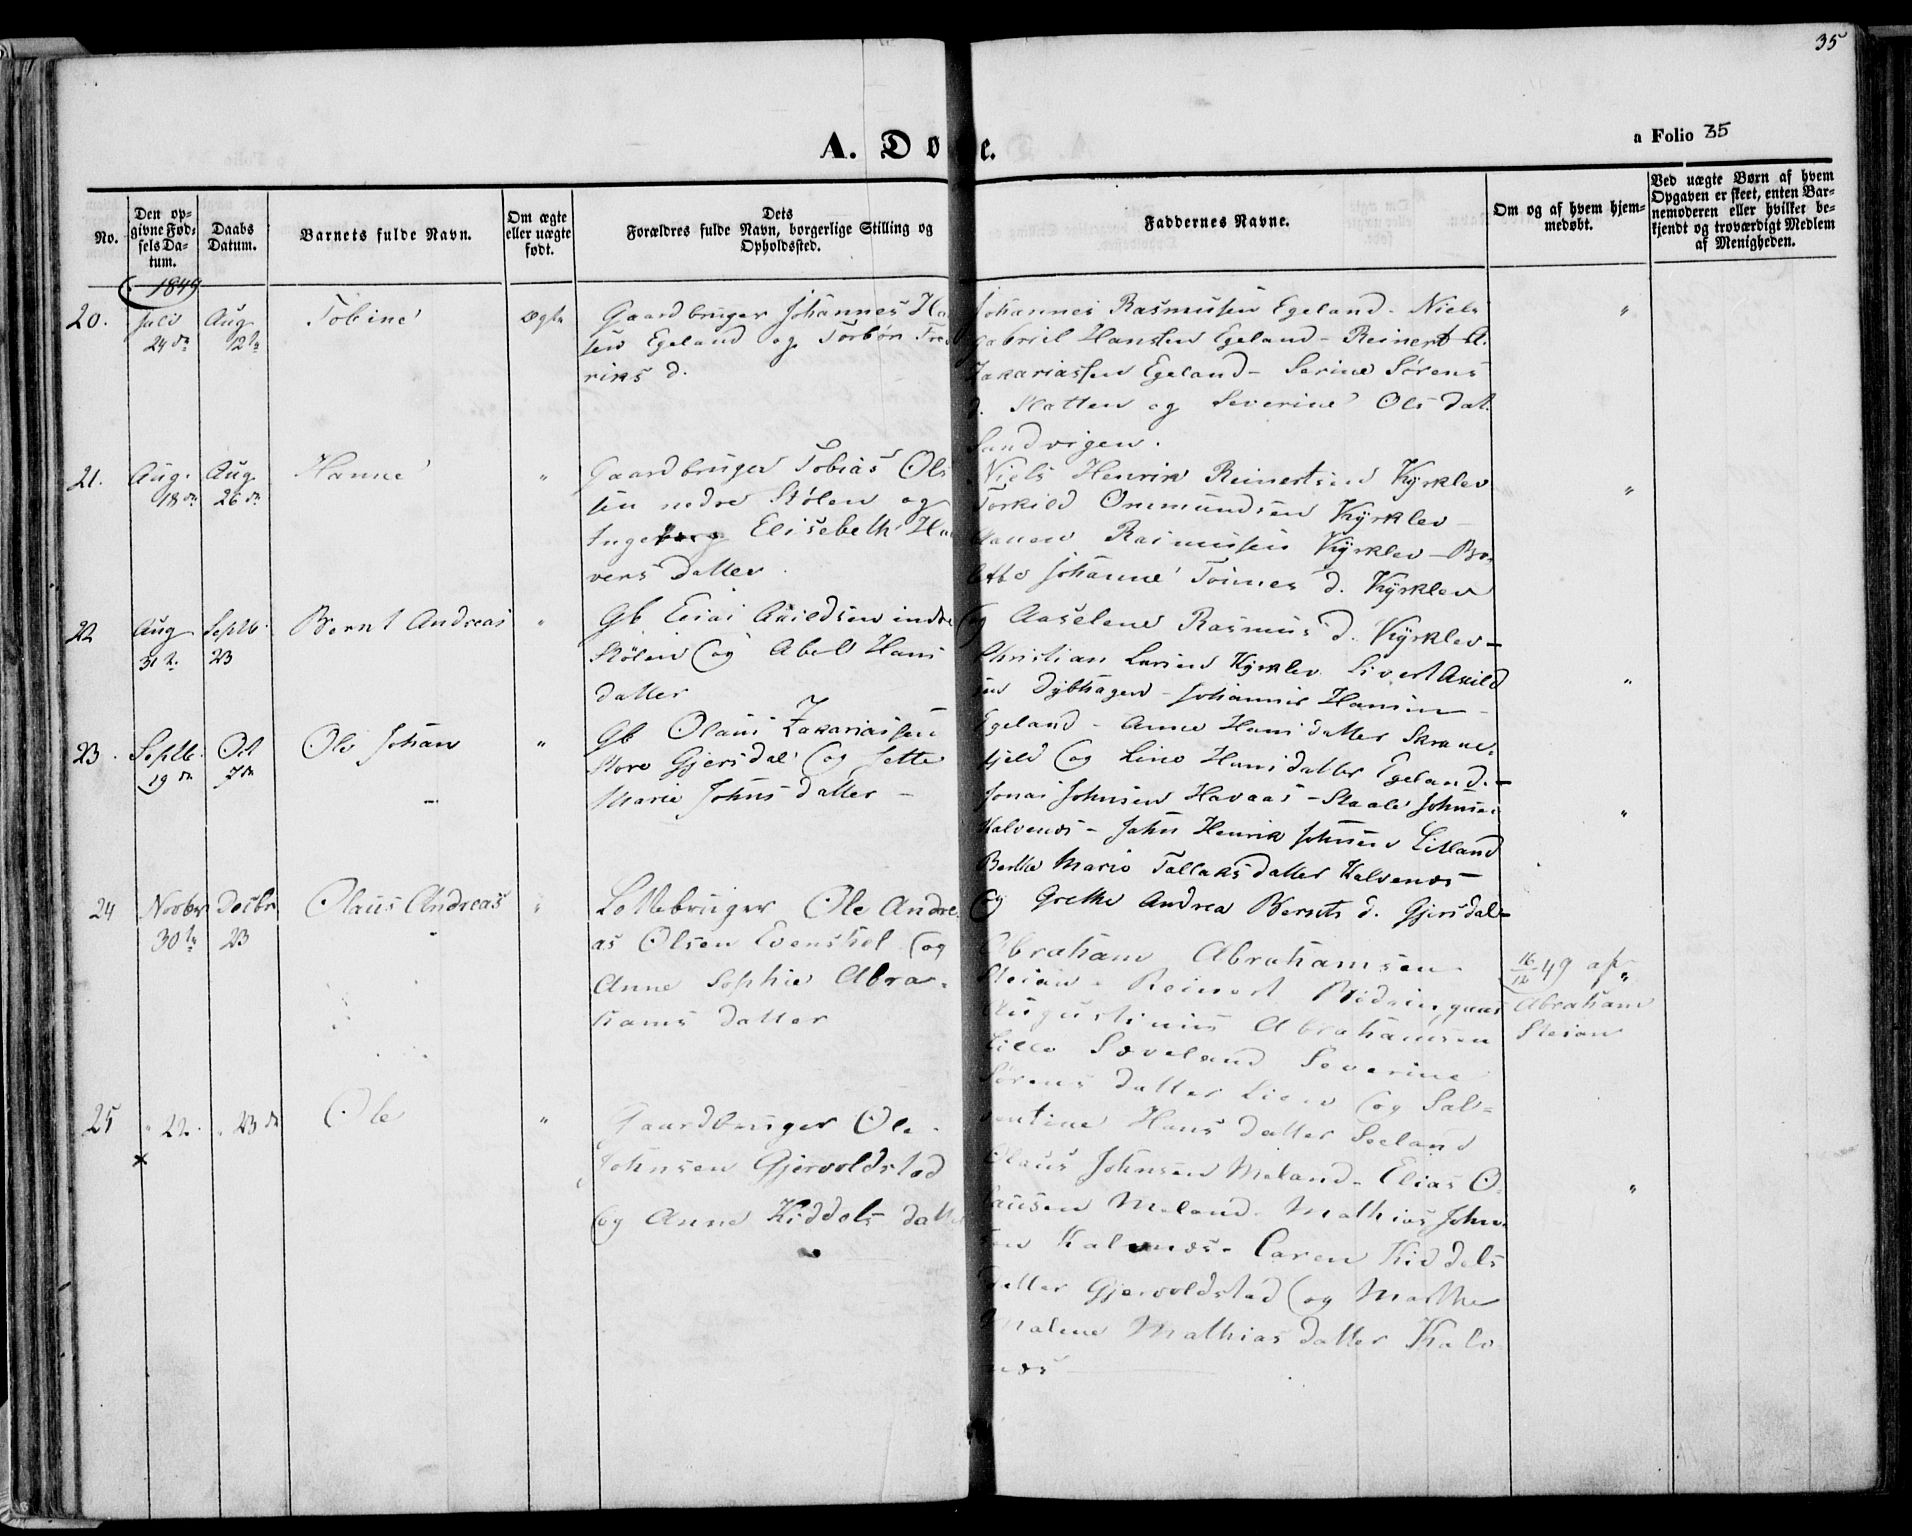 35
A. Døbte.
a Folio 35
No.
Den op-
givne Fød-
sels Da-
tum.
Daabs
Datum.
Barnets fulde Navn.
Om ægte
eller uægte
født.
Dets
Forældres fulde Navn, borgerlige Stilling og
Opholdssted.
Faddernes Navne.
Om og af hvem hjem-
medøbt.
Ved uægte Børn af hvem
Opgaven er skeet, enten Bar-
nemoderen eller hvilket be-
kjendt og troværdigt Medlem
af Menigheden.
1849
20.
Juli
24 de
Aug
12 te
Tobine
Ægte
Gaardbruger Johannes Han
sen Egeland og Torbør Fred
riks d.
Johannes Rasmusen Egeland - Niels
Gabriel Hansen Egeland - Reinert A.
Zakariassen Egeland - Serine Sørens
d. Slatten og Severine Ols dat.
Sandvigen.
"
21.
Aug.
18 de
Aug
26 de
Hanne
"
Gaardbruger Tobias Ols
sen nedre Stølen og
Ingeborg Elisebeth Ha
vers datter.
Niels Henrik Reinertsen Kyrklev
Torkild Ommundsen Kyrklev -
Rasmusen Kyrklev - Bo-
lette Johanne Tonnes d. Kyrklev
og Aaselene Rasmus d. Kyrklev -
"
22
Aug
31 te
Septb.
23
Bernt Andreas
"
Gb Eiliasildsen indre
Stølen og Abel Hans
datter
Christian Larsen Kyrklev Sivert Axild
sen Dybhagen - Johannis Hansen -
Egeland - Anne Hans datter Skrane-
fjeld og Line Hansdatter Egeland. -
"
23.
Septb.
19 de
Oct
7 de
Ole Johan
"
Gb Olaus Zakariassen
Store Gjersdal og Jette
Marie Johns datter -
Jonas Johnsen Havaas - Staale Johnsen
Kalvenes - John Henrik Johnsen Lisland
Berthe Marie Tallaks datter Kalvenes -
Og Grethe Andrea Bernts d. Gjersdal -
"
24
Novbr
30 te
Decbr
23
Olaus Andreas
"
Lottebruger Ole Andre
as Olsen Evenskel og
Anne Sophie Abra-
hams datter
Abraham Abrahamsen
Steian - Reinert
Augustinus Abrahamsen
Lille Sæveland Severine
Sørens datter Lien og Sal-
ventine Hans datter Seeland
16/12 49 af
Abraham
Steian
"
25
" 22.
" 23 de
Ole
"
Gaardbruger Ole
Johnsen Gjervoldstad
og Anne Kiddels datter
Olaus Johnsen Meland - Elias O-
lausen Meland - Mathias John-
sen Kalvenes - Caren Kiddels
datter Gjervoldstad og Marthe
Malene Mathias datter Kalv
nes
"